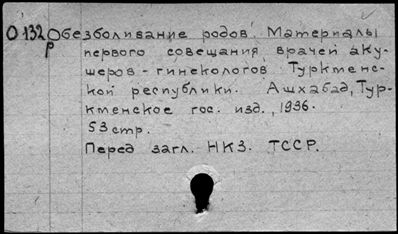 О 132 Обезболивание родов. Материалы
р первого совещания врачей аку-
шеров - гинекологов Туркменс-
кой республики. Ашхабад, Тур-
кменское гос. изд., 1936.
53 стр.
Перед загл. НКЗ. ТССР.